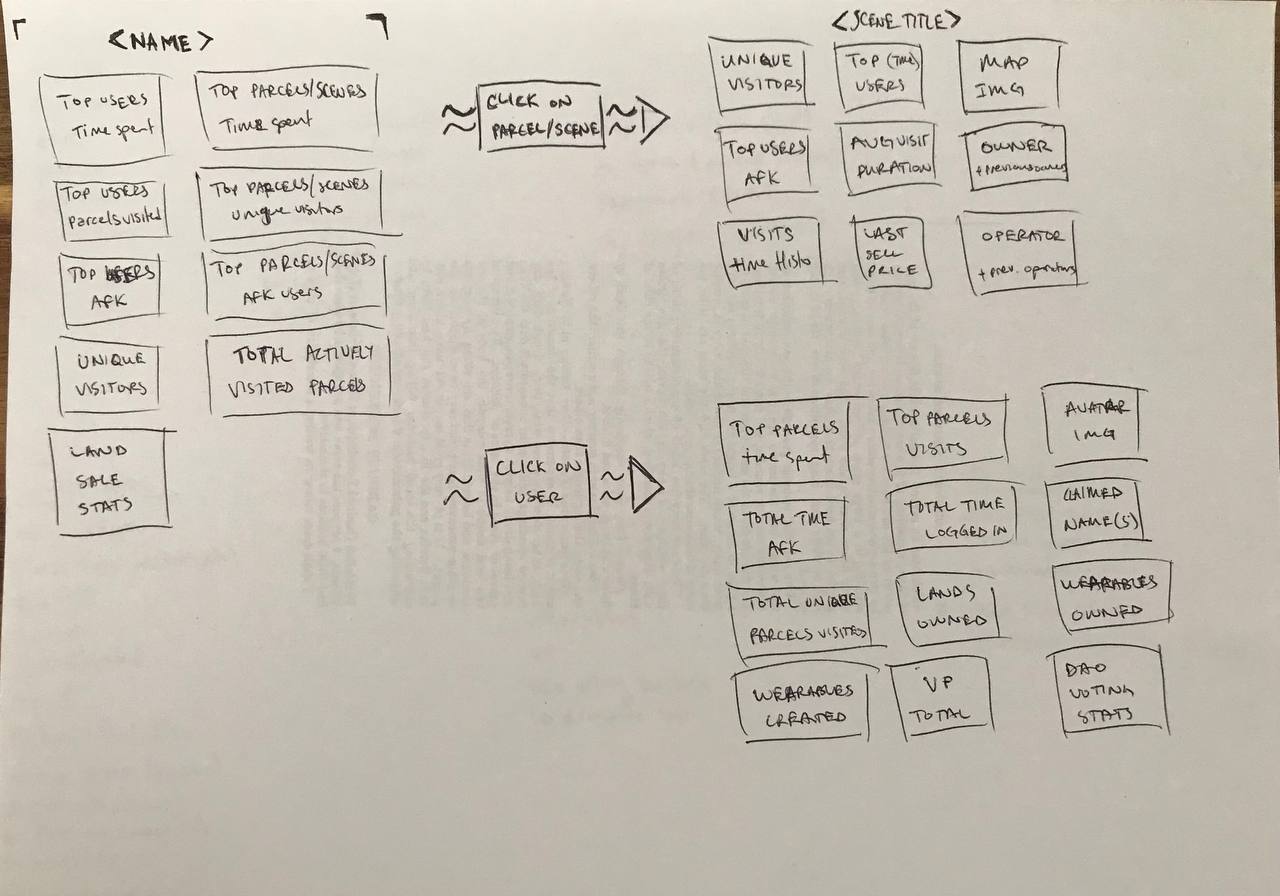 <NAME>
TOP USERS
Time spent
TOP PARCELS/SCENES
Time spent
TOP USERS
parcels visited
TOP PARCELS/SCENES
unique visitors
TOP USERS
AFK
TOP PARCELS/SCENES
AFK users
UNIQUE
VISITORS
TOTAL ACTIVELY
VISITED PARCELS
LAND
SALE
STATS
CLICK ON
PARCEL/SCENE
<SCENE TITLE>
UNIQUE
VISITORS
TOP (TIME)
USERS
MAP
IMG
TOP USERS
AFK
AVG VISIT
DURATION
OWNER
+ previous owners
VISITS
time Histo
LAST
SELL
PRICE
OPERATOR
+ prev. operators
CLICK ON
USER
TOP PARCELS
time spent
TOP PARCELS
VISITS
AVATAR
IMG
TOTAL TIME
AFK
TOTAL TIME
LOGGED IN
CLAIMED
NAME(S)
TOTAL UNIQUE
PARCELS VISITED
LANDS
OWNED
WEARABLES
OWNED
WEARABLES
CREATED
VP
TOTAL
DAO
VOTING
STATS